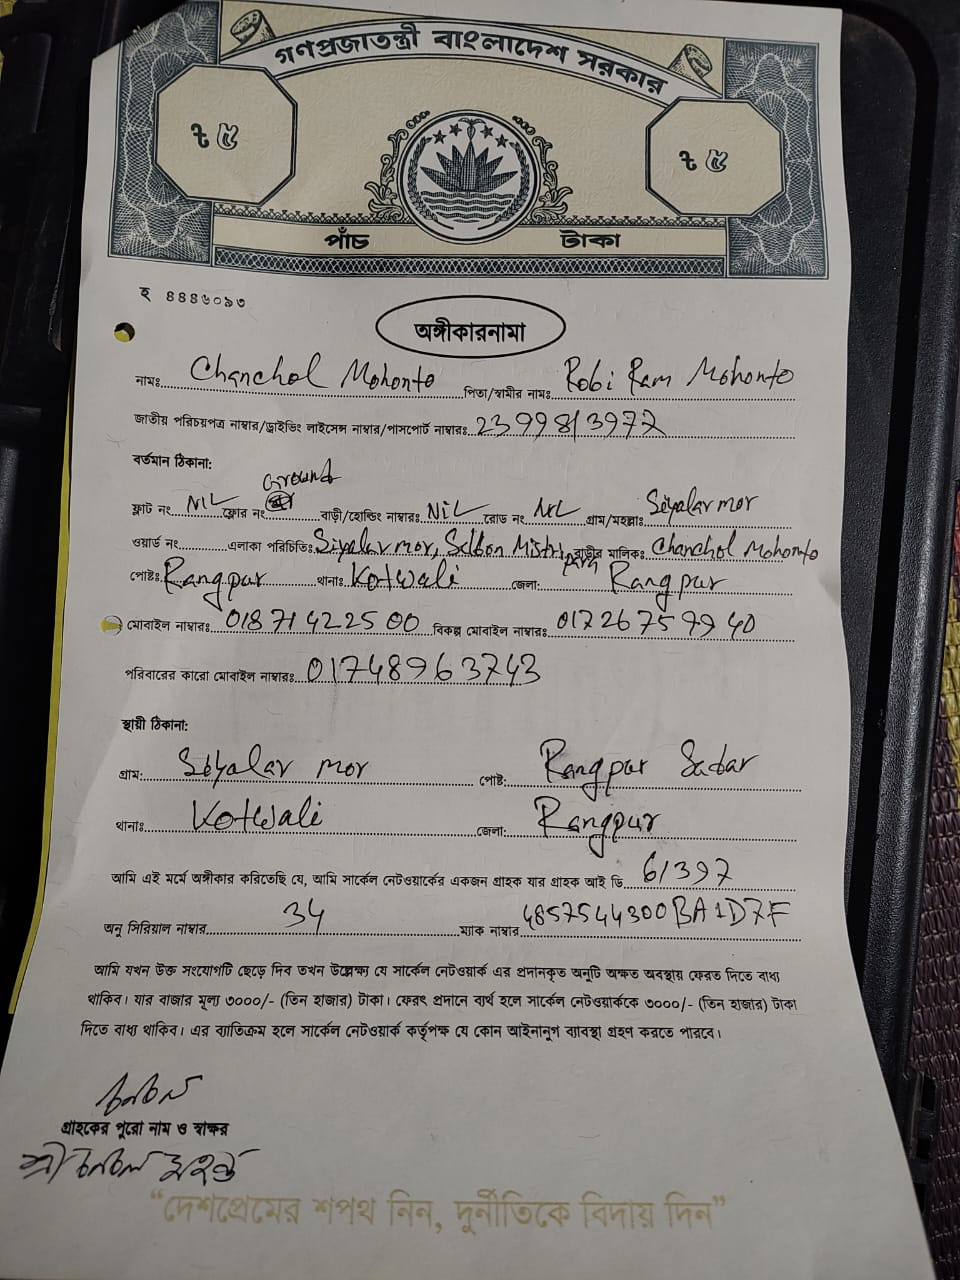 গণপ্রজাতন্ত্রী বাংলাদেশ সরকার
৳ ৫ ৳ ৫
পাঁচ টাকা
হ ৪৪৪৬০৯৩
অঙ্গীকারনামা
নামঃ Chanchol Mohonto পিতা/স্বামীর নামঃ Robi Ram Mohonto
জাতীয় পরিচয়পত্র নাম্বার/ড্রাইভিং লাইসেন্স নাম্বার/পাসপোর্ট নাম্বারঃ 2399813972
বর্তমান ঠিকানা:
Ground
ফ্লাট নং NIL ফ্লোর নং বাড়ী/হোল্ডিং নাম্বারঃ NIL রোড নং NIL গ্রাম/মহল্লাঃ Siyalar mor
ওয়ার্ড নং এলাকা পরিচিতিঃ Siyalar mor, Mistri para বাড়ীর মালিকঃ Chanchol Mohonto
পোষ্টঃ Rangpur থানাঃ Kotwali জেলা: Rangpur
মোবাইল নাম্বারঃ 01871422500 বিকল্প মোবাইল নাম্বারঃ 01726759940
পরিবারের কারো মোবাইল নাম্বারঃ 01748963743
স্থায়ী ঠিকানা:
গ্রাম: Siyalar mor পোষ্ট: Rangpur Sadar
থানাঃ Kotwali জেলা: Rangpur
আমি এই মর্মে অঙ্গীকার করিতেছি যে, আমি সার্কেল নেটওয়ার্কের একজন গ্রাহক যার গ্রাহক আই ডি 61397
অনু সিরিয়াল নাম্বার 34 ম্যাক নাম্বার 4857544300BA1D7F
আমি যখন উক্ত সংযোগটি ছেড়ে দিব তখন উল্লেক্ষ্য যে সার্কেল নেটওয়ার্ক এর প্রদানকৃত অনুটি অক্ষত অবস্থায় ফেরত দিতে বাধ্য
থাকিব। যার বাজার মূল্য ৩০০০/- (তিন হাজার) টাকা। ফেরৎ প্রদানে ব্যর্থ হলে সার্কেল নেটওয়ার্ককে ৩০০০/- (তিন হাজার) টাকা
দিতে বাধ্য থাকিব। এর ব্যাতিক্রম হলে সার্কেল নেটওয়ার্ক কর্তৃপক্ষ যে কোন আইনানুগ ব্যাবস্থা গ্রহণ করতে পারবে।
চনচল
গ্রাহকের পুরো নাম ও স্বাক্ষর
শ্রী চনচল মহন্ত
“দেশপ্রেমের শপথ নিন, দুর্নীতিকে বিদায় দিন”